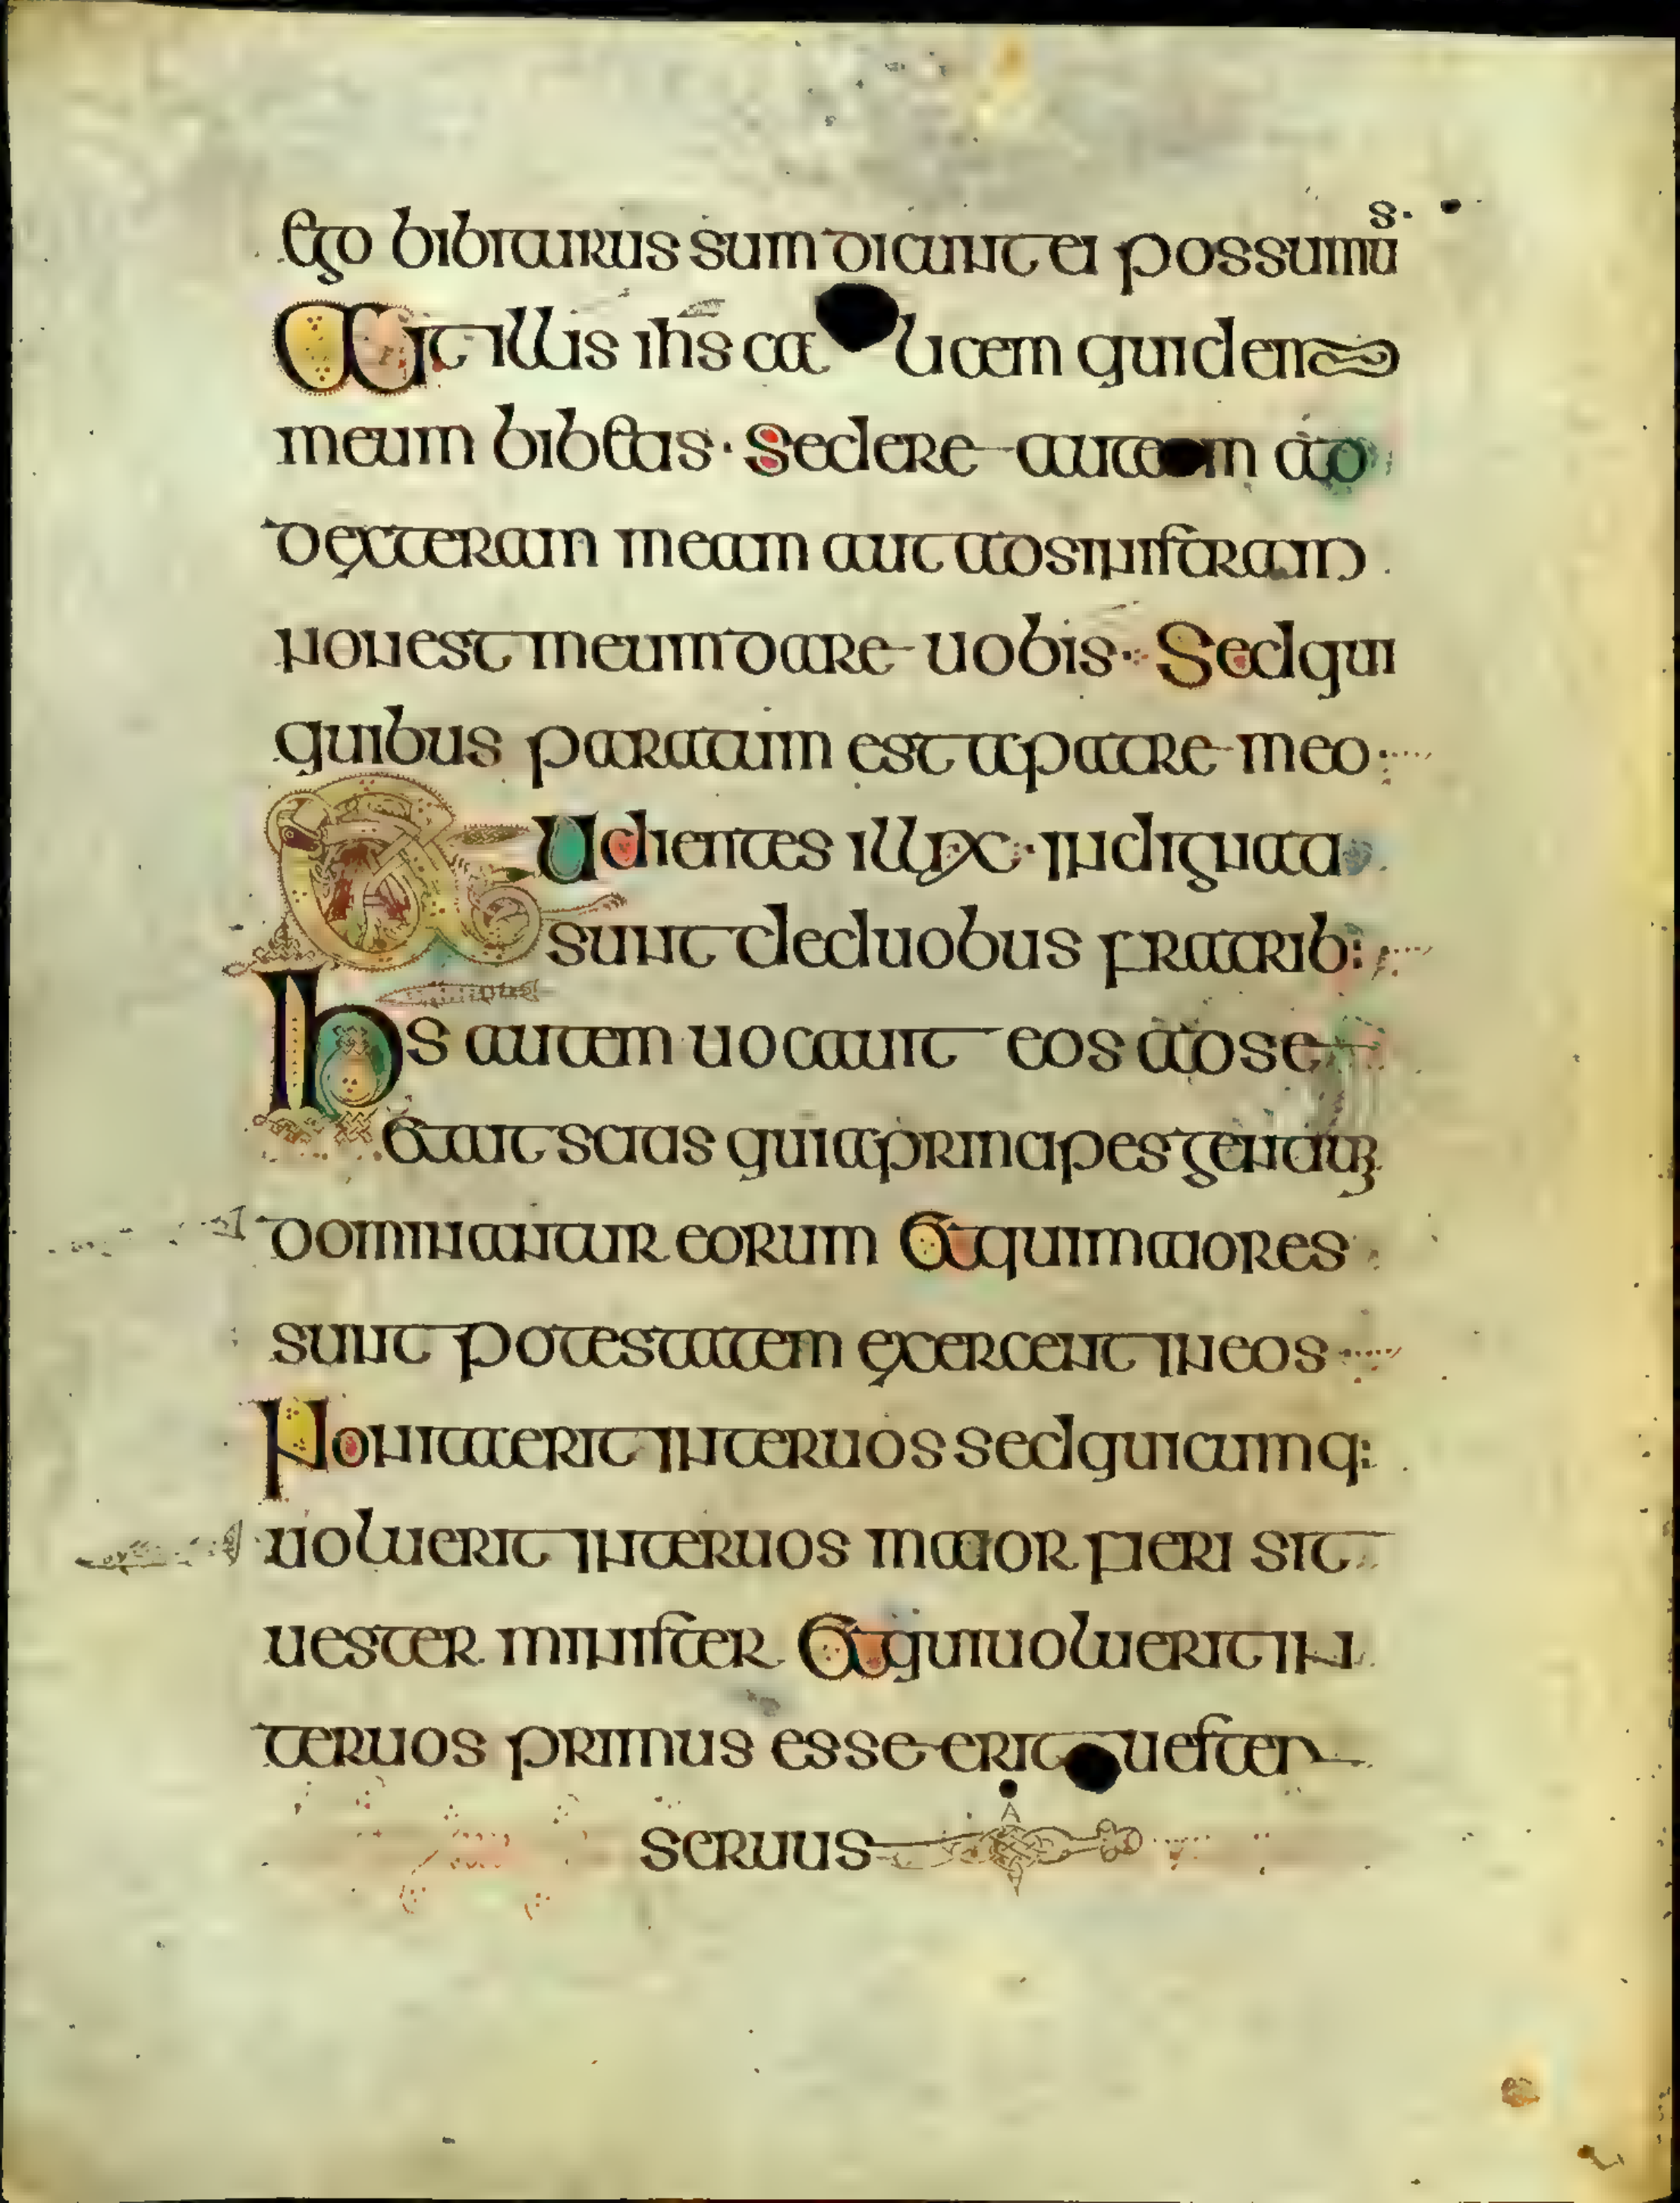 Ego bibiturus sum dicunt ei possumus
Ait illis ihs calicem quidem
meum bibetis · Sedere autem ad
dexteram meam aut ad sinistram
non est meum dare uobis · Sed qui
quibus paratum est a patre meo
Audientes illi x · indignati
sunt de duobus fratrib:
Ihs autem uocauit eos ad se
Et ait scitis quia principes gentium
dominantur eorum Et qui maiores
sunt potestatem exercent in eos
Non ita erit inter uos sed quicumq:
uoluerit inter uos maior fieri sit
uester minister Et qui uoluerit in
ter uos primus esse erit uester
seruus